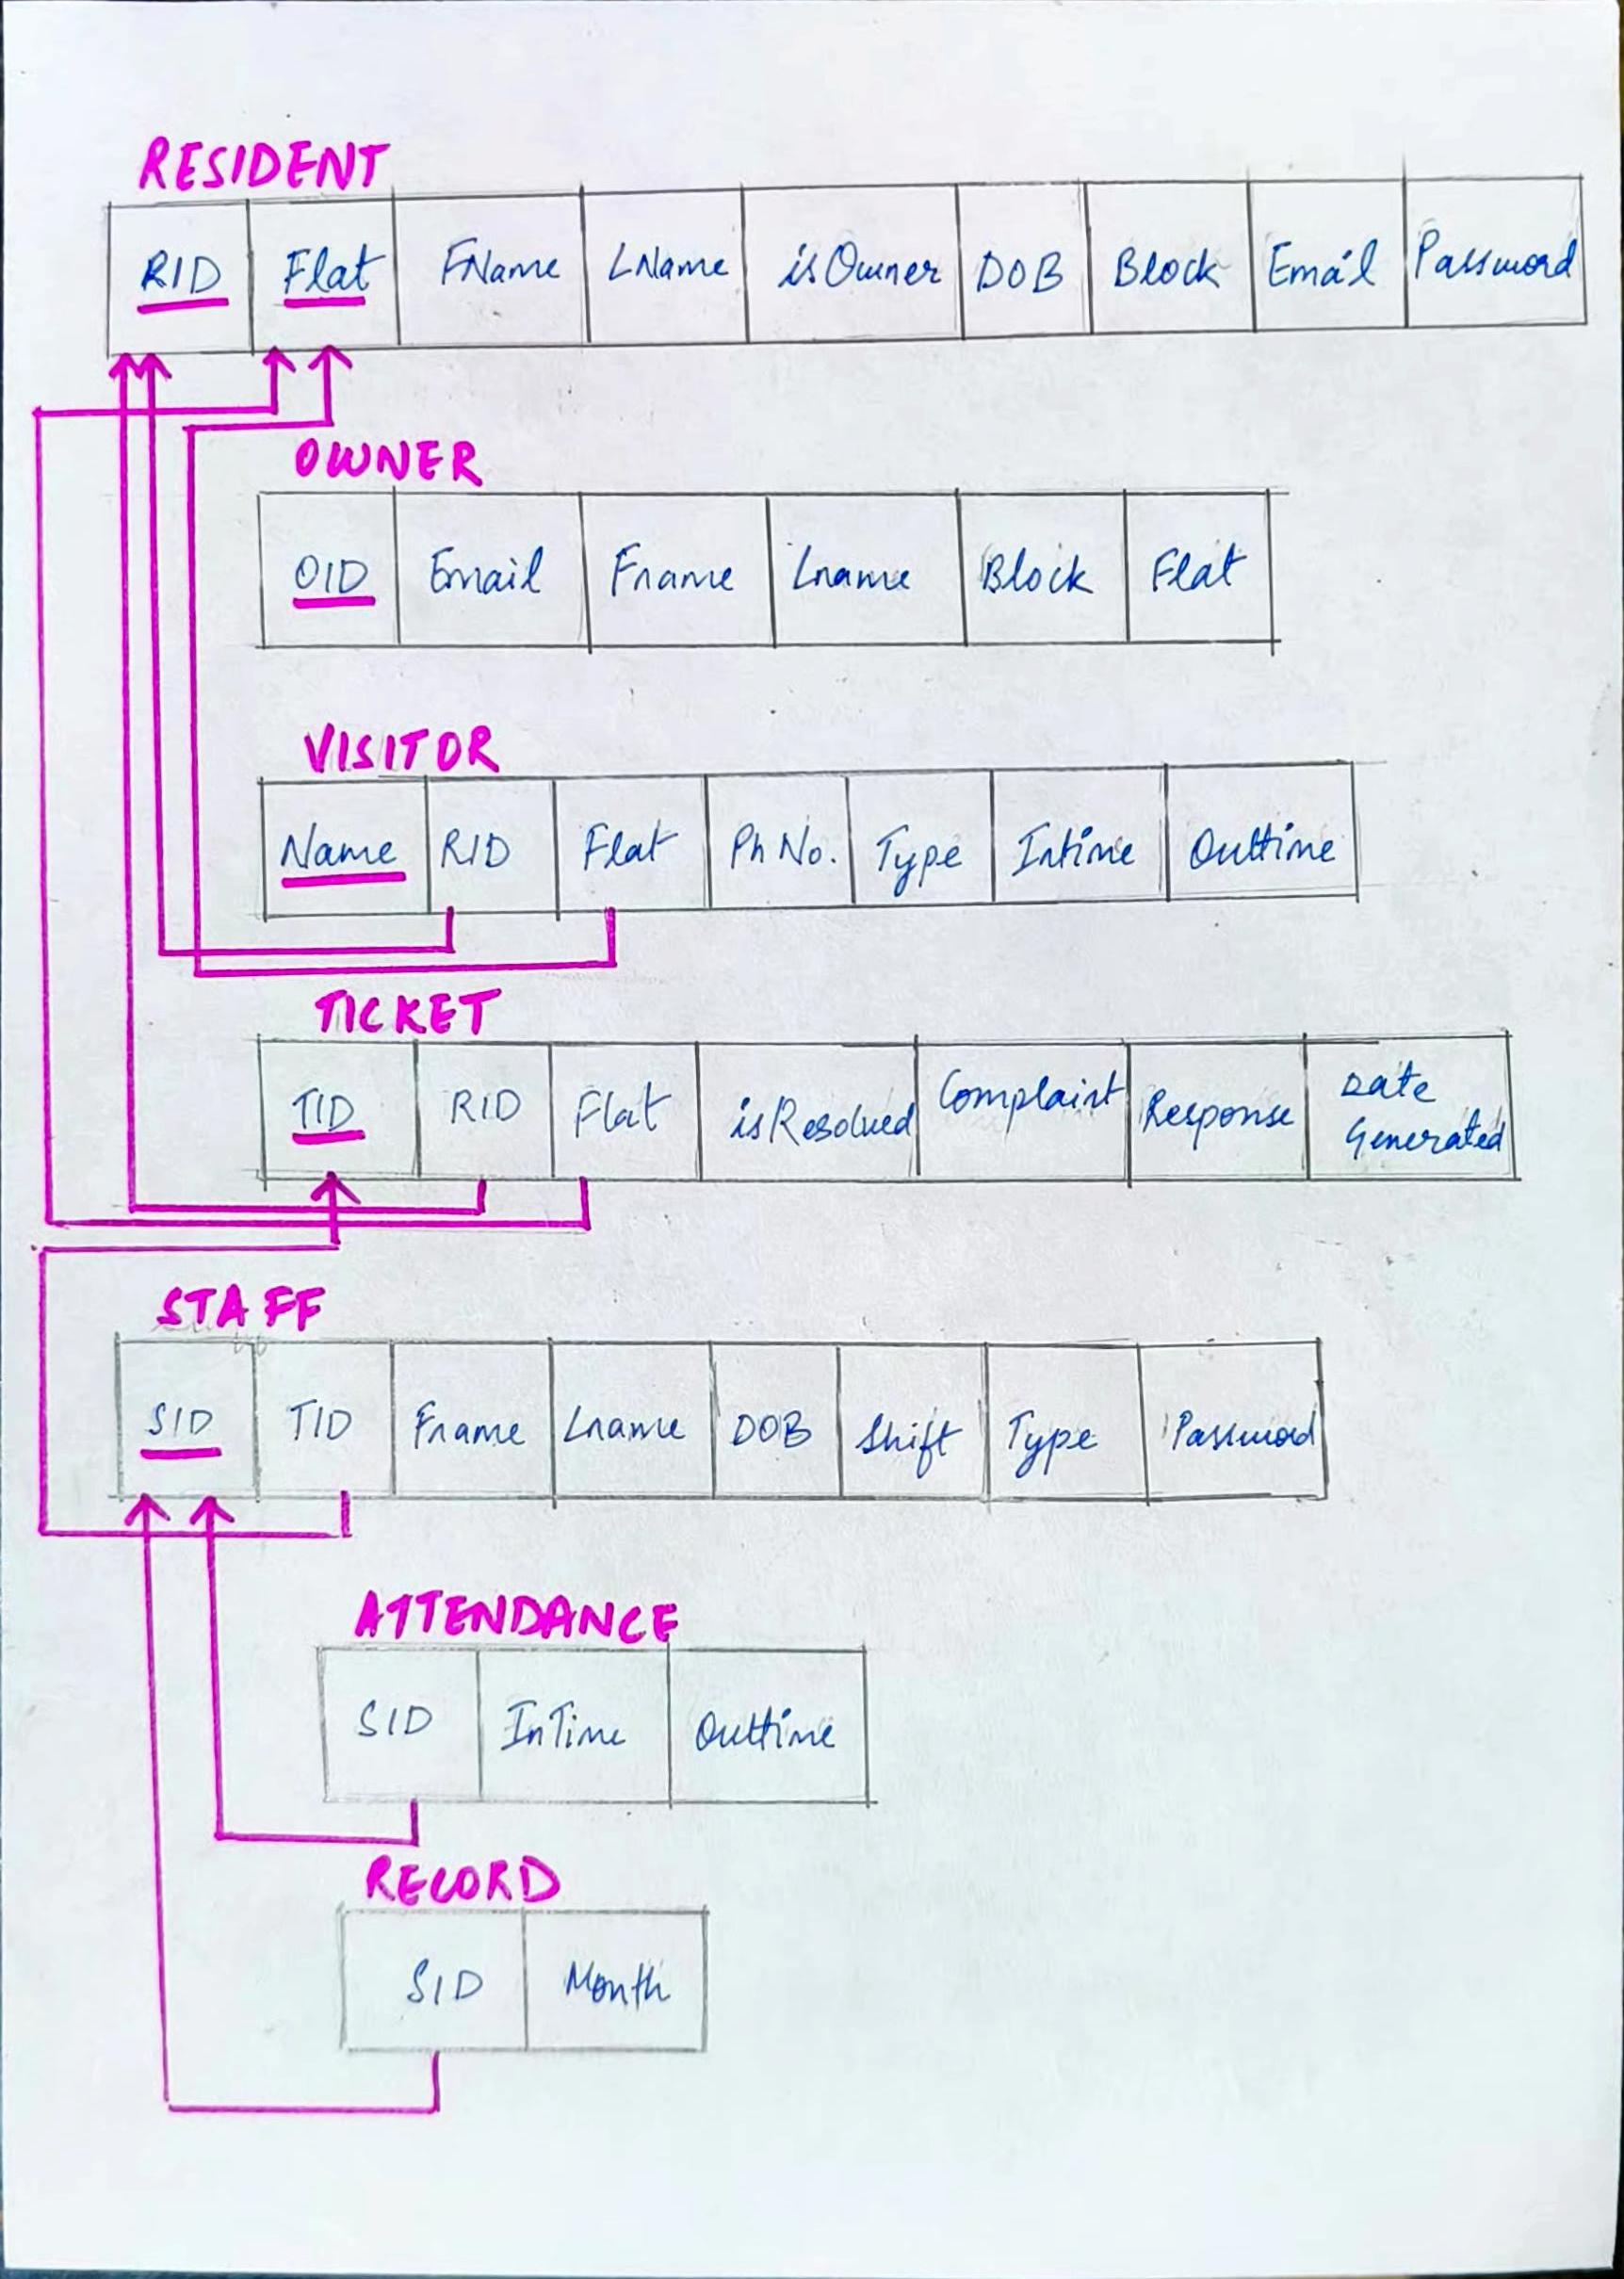 RESIDENT
RID Flat FName LName isOwner DOB Block Email Password
OWNER
OID Email Fname Lname Block Flat
VISITOR
Name RID Flat Ph No. Type Intime Outtime
TICKET
TID RID Flat isResolved Complaint Response Date Generated
STAFF
SID TID Fname Lname DOB Shift Type Password
ATTENDANCE
SID InTime Outtime
RECORD
SID Month